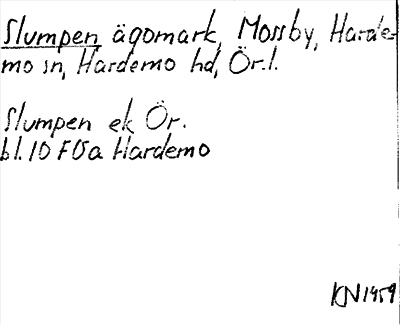 Slumpen ägomark, Mossby, Harde-
mo sn, Hardemo hd, Ör.l.
Slumpen ek Ör.
bl.10 FÖa Hardemo
KN 1959